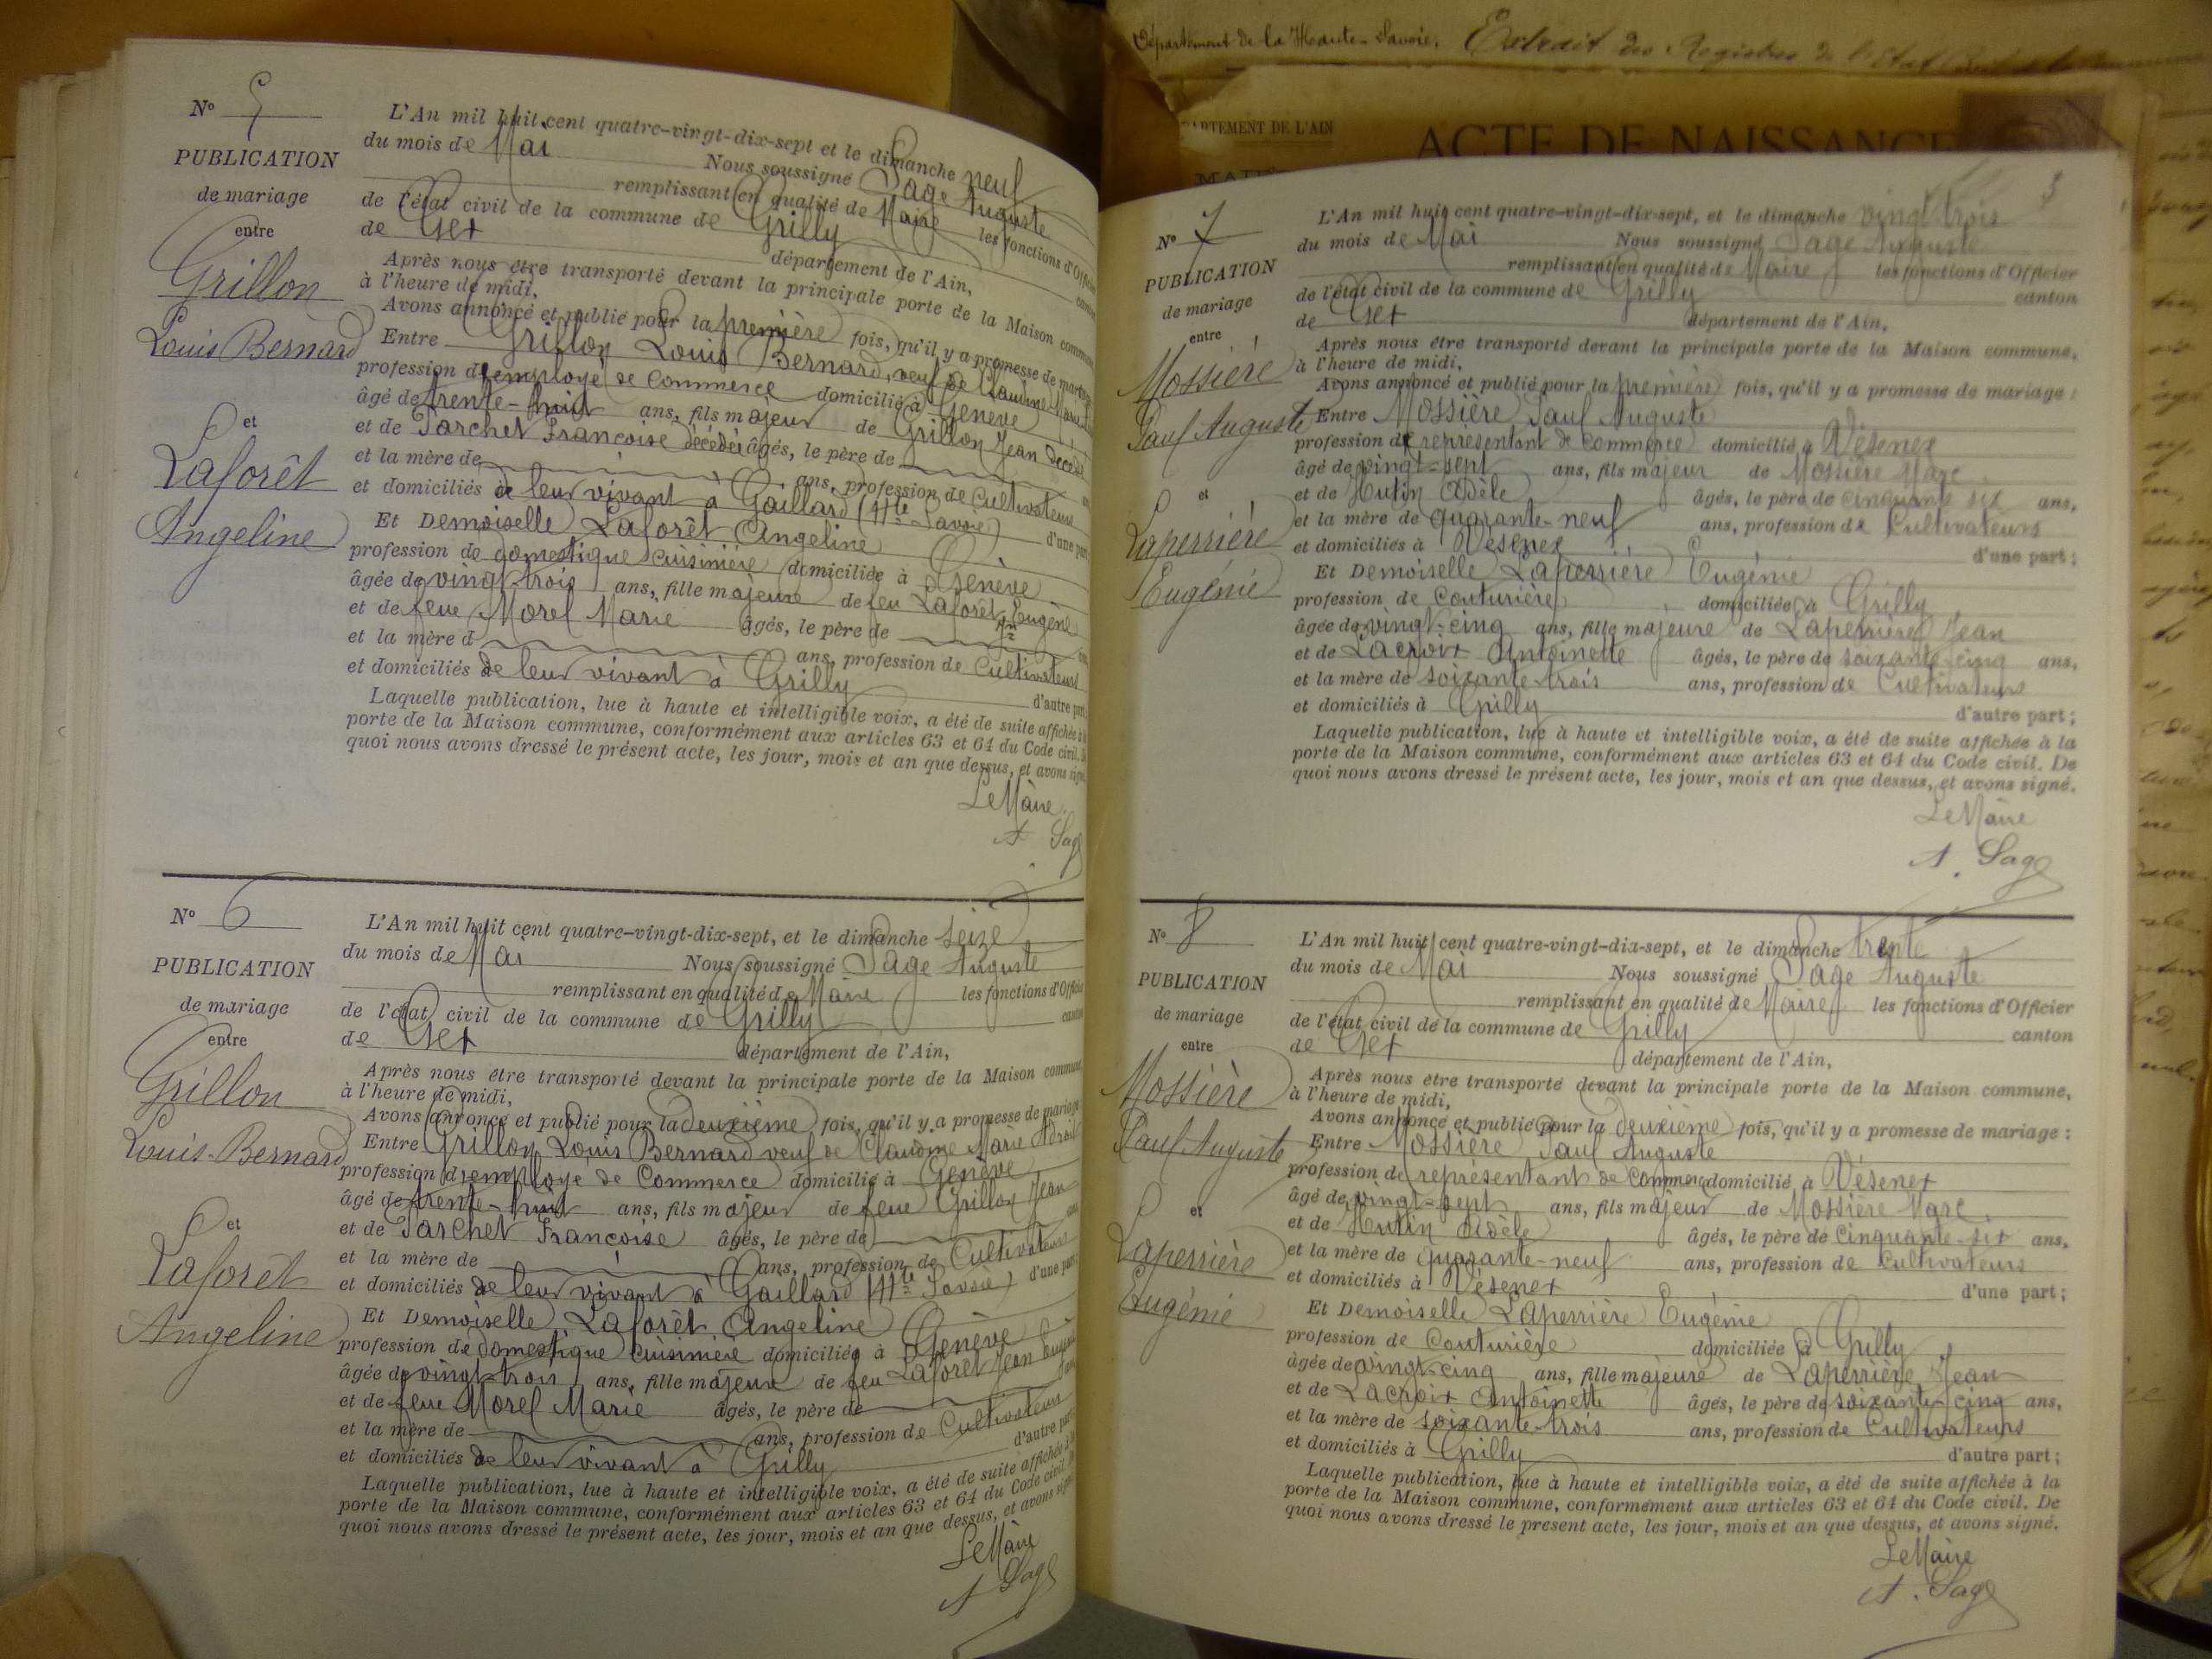 Département de la Haute-Savoie. Extrait des Registres de l'Etat
ARTEMENT DE L'AIN
ACTE DE NAISSANCE
N° 5
PUBLICATION
de mariage
entre
Grillon
Louis Bernard
et
Laforêt
Angeline
L'An mil huit cent quatre-vingt-dix-sept et le dimanche neuf
du mois de Mai Nous soussigné Sage Auguste
remplissant en qualité de Maire les fonctions d'Officier
de l'état civil de la commune de Grilly canton
de Gex département de l'Ain,
Après nous être transporté devant la principale porte de la Maison commune
à l'heure de midi,
Avons annoncé et publié pour la première fois, qu'il y a promesse de mariage
Entre Grillon Louis Bernard, veuf de Claudine Marie
profession d'employé de Commerce domicilié à Genève
âgé de trente-huit ans, fils majeur de Grillon Jean décédé
et de Parchet Françoise décédée âgés, le père de
et la mère de ans, profession de Cultivateurs
et domiciliés de leur vivant à Gaillard (Hte Savoie) d'une part
Et Demoiselle Laforêt Angeline
profession de domestique cuisinière domiciliée à Genève
âgée de vingt-trois ans, fille majeure de feu Laforêt Jn Eugène
et de feue Morel Marie âgés, le père de
et la mère d ans, profession de Cultivateurs
et domiciliés de leur vivant à Grilly d'autre part
Laquelle publication, lue à haute et intelligible voix, a été de suite affichée à la
porte de la Maison commune, conformément aux articles 63 et 64 du Code civil. De
quoi nous avons dressé le présent acte, les jour, mois et an que dessus, et avons signé
Le Maire
A Sage
N° 6
PUBLICATION
de mariage
entre
Grillon
Louis-Bernard
et
Laforêt
Angeline
L'An mil huit cent quatre-vingt-dix-sept, et le dimanche seize
du mois de Mai Nous soussigné Sage Auguste
remplissant en qualité de Maire les fonctions d'Officier
de l'état civil de la commune de Grilly canton
de Gex département de l'Ain,
Après nous être transporté devant la principale porte de la Maison commune
à l'heure de midi,
Avons annoncé et publié pour la deuxième fois, qu'il y a promesse de mariage
Entre Grillon Louis Bernard veuf de Claudine Marie
profession d'employé de Commerce domicilié à Genève
âgé de trente-huit ans, fils majeur de feue Grillon Jean
et de Parchet Françoise âgés, le père de ans
et la mère de ans, profession de Cultivateurs
et domiciliés de leur vivant à Gaillard (Hte Savoie) d'une part
Et Demoiselle Laforêt Angeline
profession de domestique cuisinière domiciliée à Genève
âgée de vingt-trois ans, fille majeure de feu Laforêt Jean Eugène
et de feue Morel Marie âgés, le père de ans
et la mère de ans, profession de Cultivateurs
et domiciliés de leur vivant à Grilly d'autre part
Laquelle publication, lue à haute et intelligible voix, a été de suite affichée à la
porte de la Maison commune, conformément aux articles 63 et 64 du Code civil. De
quoi nous avons dressé le présent acte, les jour, mois et an que dessus, et avons signé
Le Maire
A Sage
3
N° 7
PUBLICATION
de mariage
entre
Mossière
Paul Auguste
et
Laperrière
Eugénie
L'An mil huit cent quatre-vingt-dix-sept, et le dimanche vingt-trois
du mois de Mai Nous soussigné Sage Auguste
remplissant en qualité de Maire les fonctions d'Officier
de l'état civil de la commune de Grilly canton
de Gex département de l'Ain,
Après nous être transporté devant la principale porte de la Maison commune,
à l'heure de midi,
Avons annoncé et publié pour la première fois, qu'il y a promesse de mariage :
Entre Mossière Paul Auguste
profession de représentant de commerce domicilié à Vésenex
âgé de vingt-sept ans, fils majeur de Mossière Marc
et de Hutin Adèle âgés, le père de cinquante six ans,
et la mère de quarante-neuf ans, profession de Cultivateurs
et domiciliés à Vésenex d'une part ;
Et Demoiselle Laperrière Eugénie
profession de Couturière domiciliée à Grilly
âgée de vingt-cinq ans, fille majeure de Laperrière Jean
et de Lacroix Antoinette âgés, le père de soixante-cinq ans,
et la mère de soixante-trois ans, profession de Cultivateurs
et domiciliés à Grilly d'autre part ;
Laquelle publication, lue à haute et intelligible voix, a été de suite affichée à la
porte de la Maison commune, conformément aux articles 63 et 64 du Code civil. De
quoi nous avons dressé le présent acte, les jour, mois et an que dessus, et avons signé.
Le Maire
A. Sage
N° 8
PUBLICATION
de mariage
entre
Mossière
Paul Auguste
et
Laperrière
Eugénie
L'An mil huit cent quatre-vingt-dix-sept, et le dimanche trente
du mois de Mai Nous soussigné Sage Auguste
remplissant en qualité de Maire les fonctions d'Officier
de l'état civil de la commune de Grilly canton
de Gex département de l'Ain,
Après nous être transporté devant la principale porte de la Maison commune,
à l'heure de midi,
Avons annoncé et publié pour la deuxième fois, qu'il y a promesse de mariage :
Entre Mossière Paul Auguste
profession de représentant de Commerce domicilié à Vésenex
âgé de vingt-sept ans, fils majeur de Mossière Marc
et de Hutin Adèle âgés, le père de cinquante-six ans,
et la mère de quarante-neuf ans, profession de Cultivateurs
et domiciliés à Vésenex d'une part ;
Et Demoiselle Laperrière Eugénie
profession de Couturière domiciliée à Grilly
âgée de vingt-cinq ans, fille majeure de Laperrière Jean
et de Lacroix Antoinette âgés, le père de soixante-cinq ans,
et la mère de soixante-trois ans, profession de Cultivateurs
et domiciliés à Grilly d'autre part ;
Laquelle publication, lue à haute et intelligible voix, a été de suite affichée à la
porte de la Maison commune, conformément aux articles 63 et 64 du Code civil. De
quoi nous avons dressé le présent acte, les jour, mois et an que dessus, et avons signé.
Le Maire
A. Sage